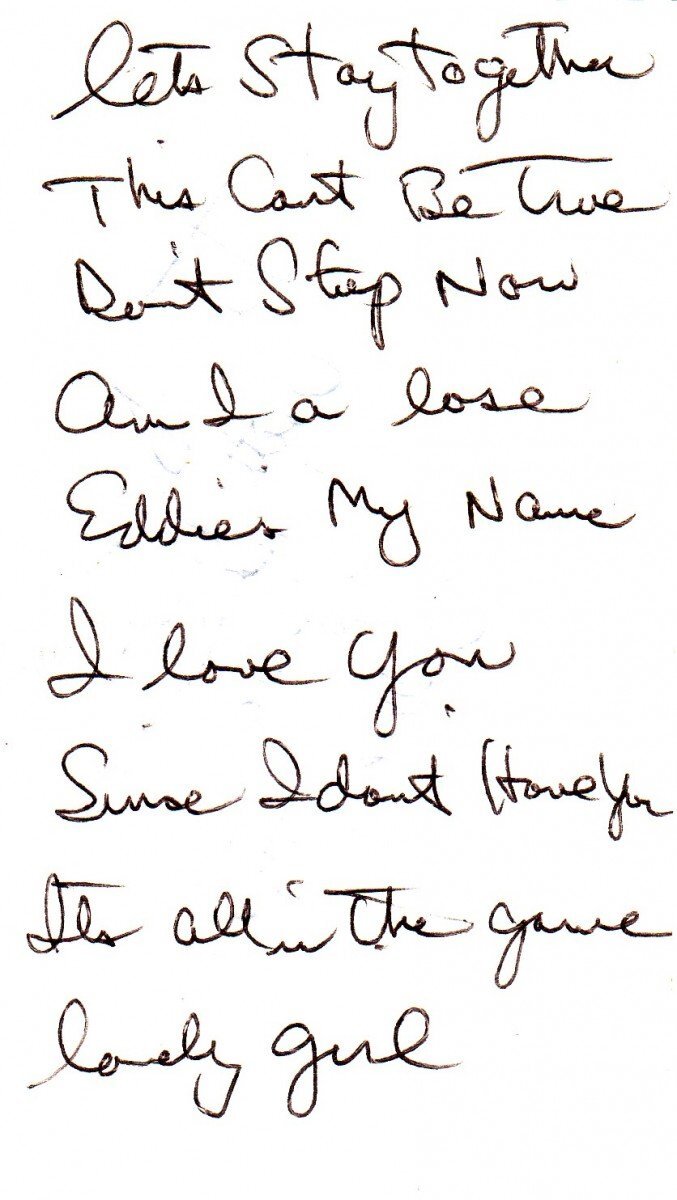 lets Stay Together
This Cant Be True
Don't Stop Now
Am I a lose
Eddies My Name
I love You
Sinse I dont Have You
Its all in The game
lovely girl